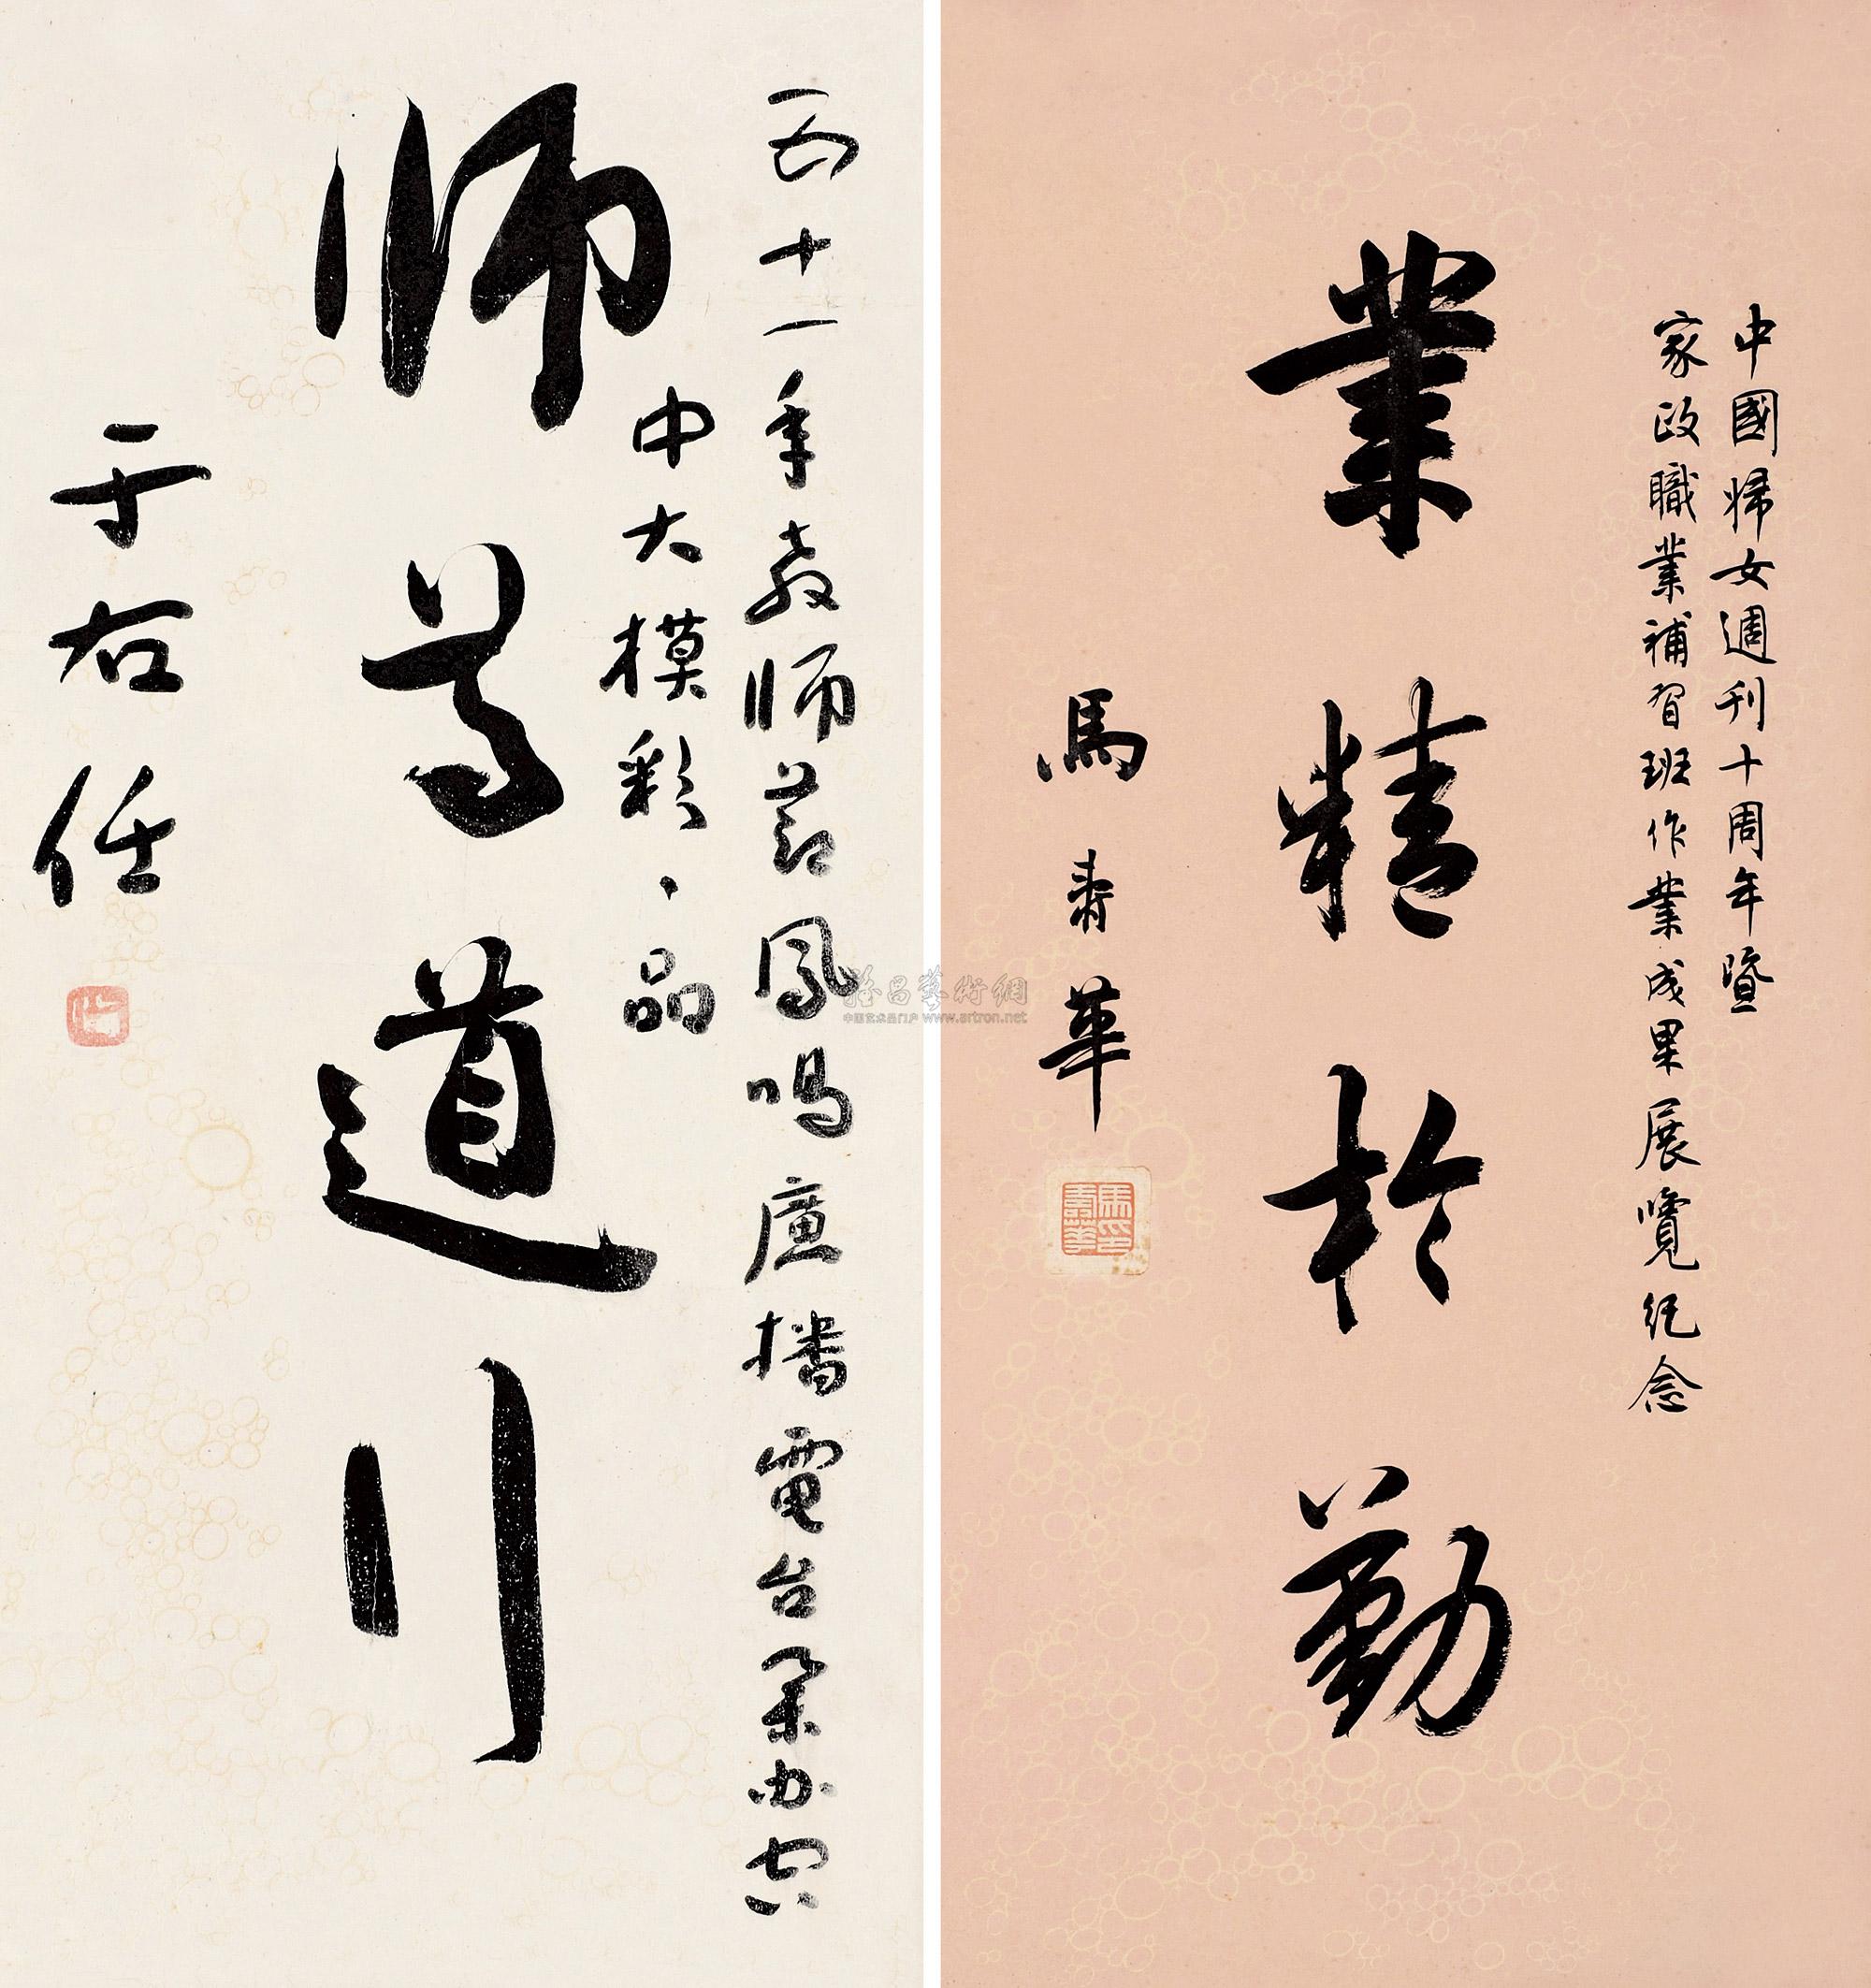 中國婦女週刊十周年暨
家政職業補習班作業成果展覽紀念
業精於勤
馬壽華
馬壽華印
四十一年教師節鳳鳴廣播電台
中大模彩
品
師尊道行
于右任
雅昌藝術網
中国艺术品门户 www.artron.net